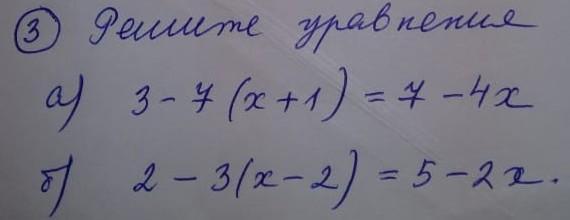 3 Решите уравнения
а) 3 - 7 (x + 1) = 7 - 4x
б) 2 - 3(x - 2) = 5 - 2x.